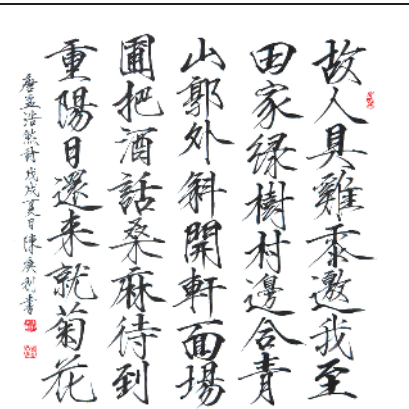 故人具雞黍邀我至
田家綠樹村邊合青
山郭外斜開軒面場
圃把酒話桑麻待到
重陽日還來就菊花
唐孟浩然詩戊戌夏月陳利書